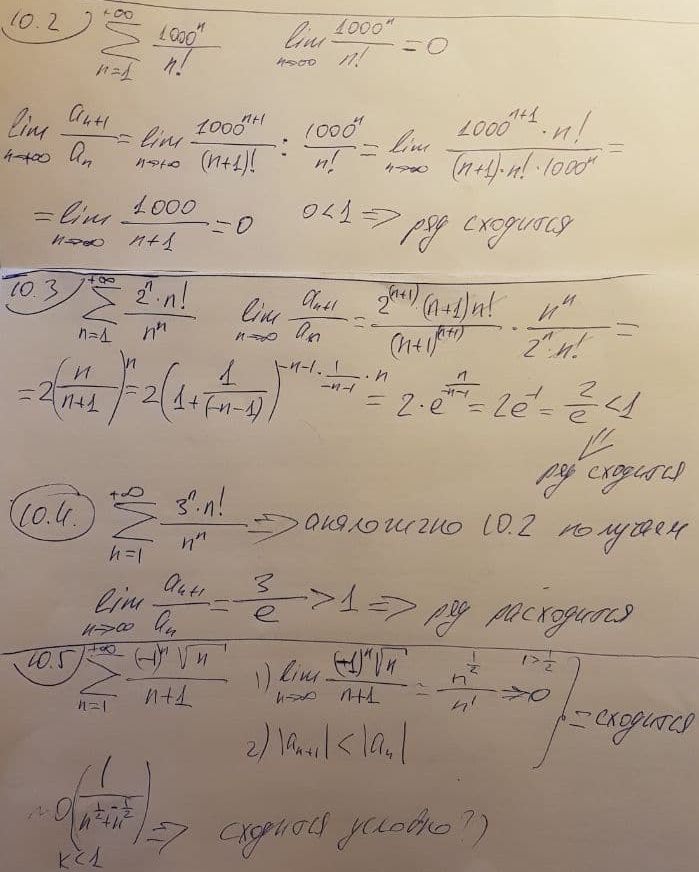 10.2) \sum_{n=1}^{+\infty} \frac{1000^n}{n!} \lim_{n \to \infty} \frac{1000^n}{n!} = 0
\lim_{n \to +\infty} \frac{a_{n+1}}{a_n} = \lim_{n \to +\infty} \frac{1000^{n+1}}{(n+1)!} : \frac{1000^n}{n!} = \lim_{n \to \infty} \frac{1000^{n+1} \cdot n!}{(n+1) \cdot n! \cdot 1000^n} =
= \lim_{n \to \infty} \frac{1000}{n+1} = 0 0 < 1 => ряд сходится
10.3) \sum_{n=1}^{+\infty} \frac{2^n \cdot n!}{n^n} \lim_{n \to \infty} \frac{a_{n+1}}{a_n} = \frac{2^{(n+1)} \cdot (n+1) n!}{(n+1)^{(n+1)}} \cdot \frac{n^n}{2^n \cdot n!} =
= 2 \left( \frac{n}{n+1} \right)^n = 2 \left( 1 + \frac{1}{(-n-1)} \right)^{-n-1 \cdot \frac{1}{-n-1} \cdot n} = 2 \cdot e^{\frac{n}{-n-1}} = 2e^{-1} = \frac{2}{e} < 1
=> ряд сходится
10.4. \sum_{n=1}^{+\infty} \frac{3^n \cdot n!}{n^n} => аналогично 10.2 получаем
\lim_{n \to \infty} \frac{a_{n+1}}{a_n} = \frac{3}{e} > 1 => ряд расходится
10.5) \sum_{n=1}^{+\infty} \frac{(-1)^n \sqrt{n}}{n+1} 1) \lim_{n \to \infty} \frac{(-1)^n \sqrt{n}}{n+1} = \frac{n^{\frac{1}{2}}}{n^1} => 0 1 > \frac{1}{2}
2) |a_{n+1}| < |a_n| } = сходится
~ O \left( \frac{1}{n^{\frac{1}{2}} + n^{-\frac{1}{2}}} \right) => сходится условно?)
k < 1